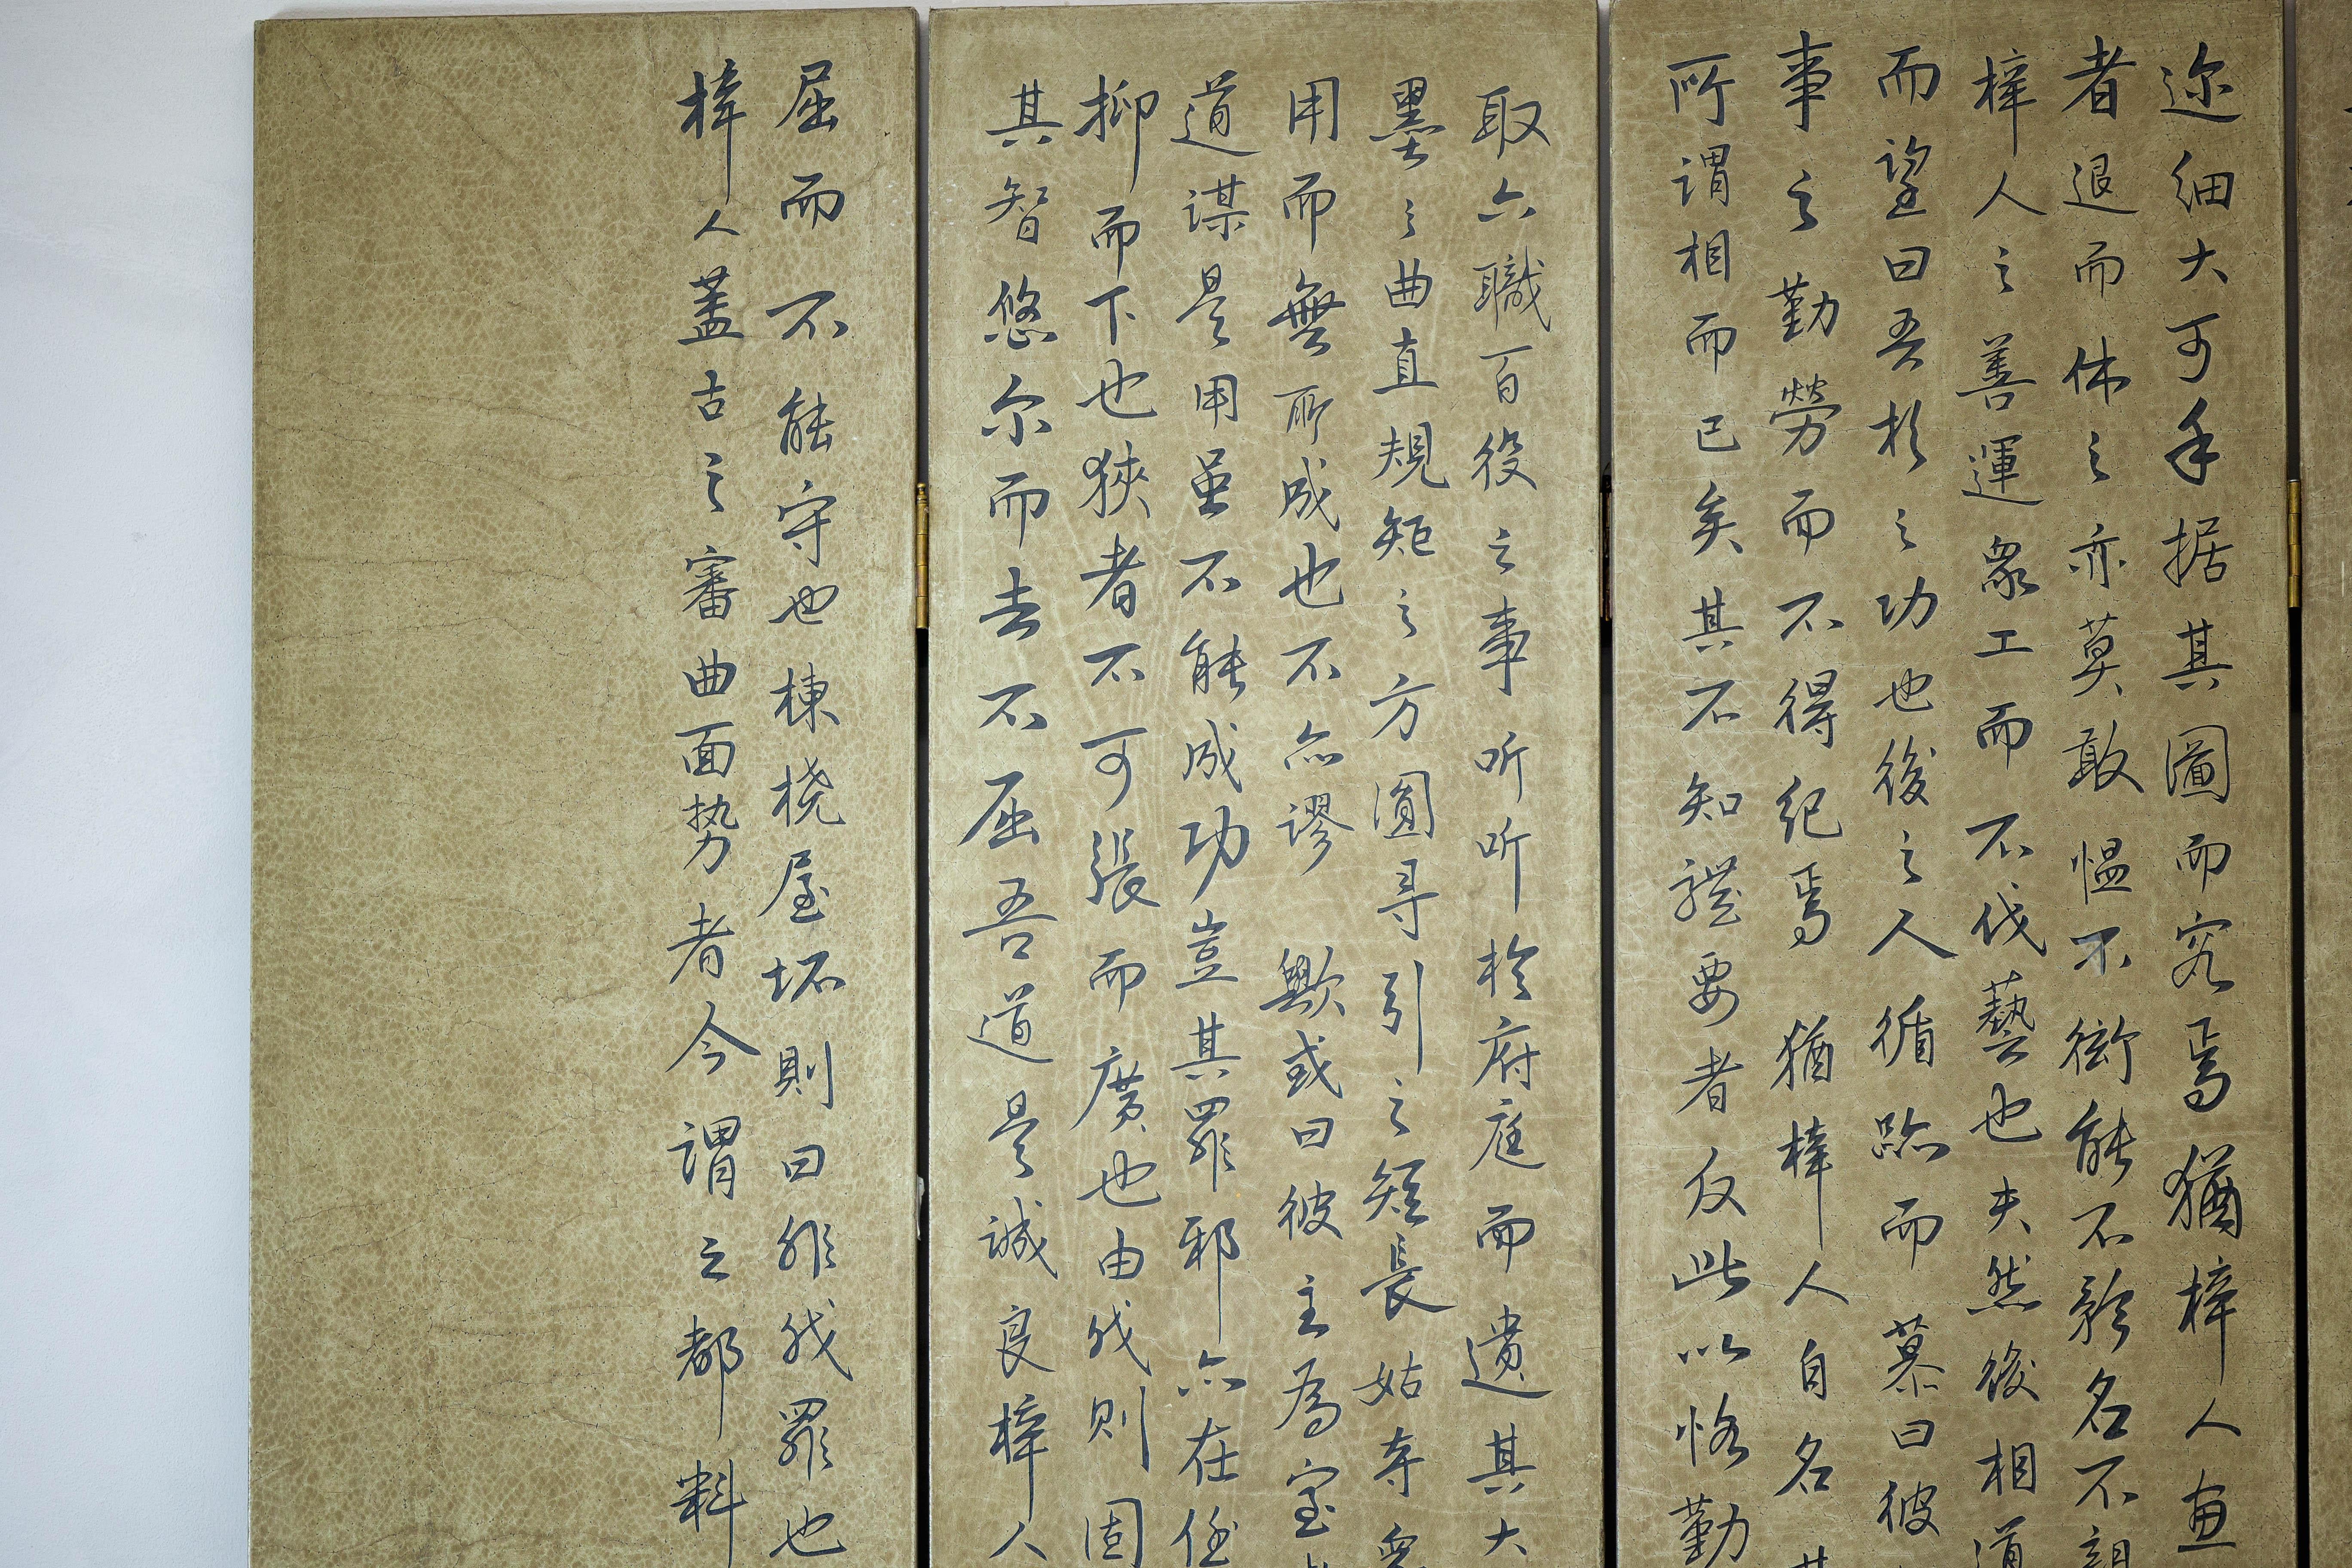 迩细大可手据其圖而究焉猶梓人畫
者退而休之亦莫敢愠不衒能不矜名不親
梓人之善運衆工而不伐藝也夫然後相道
而望曰吾相之功也後之人循跡而慕曰彼
事之勤勞而不得紀焉猶梓人自名其
所謂相而已矣其不知體要者反此以恪勤
取六職百役之事听听於府庭而遺其大
墨之曲直規矩之方圓寻引之短長姑夺衆
用而無所成也不亦謬歟或曰彼主為室
道謀是用虽不能成功豈其罪邪亦在任
抑而下也狹者不可張而廣也由我則固
其智悠尔而去不屈吾道是誠良梓人
屈而不能守也棟橈屋坏則曰非我罪也
梓人蓋古之審曲面势者今謂之都料